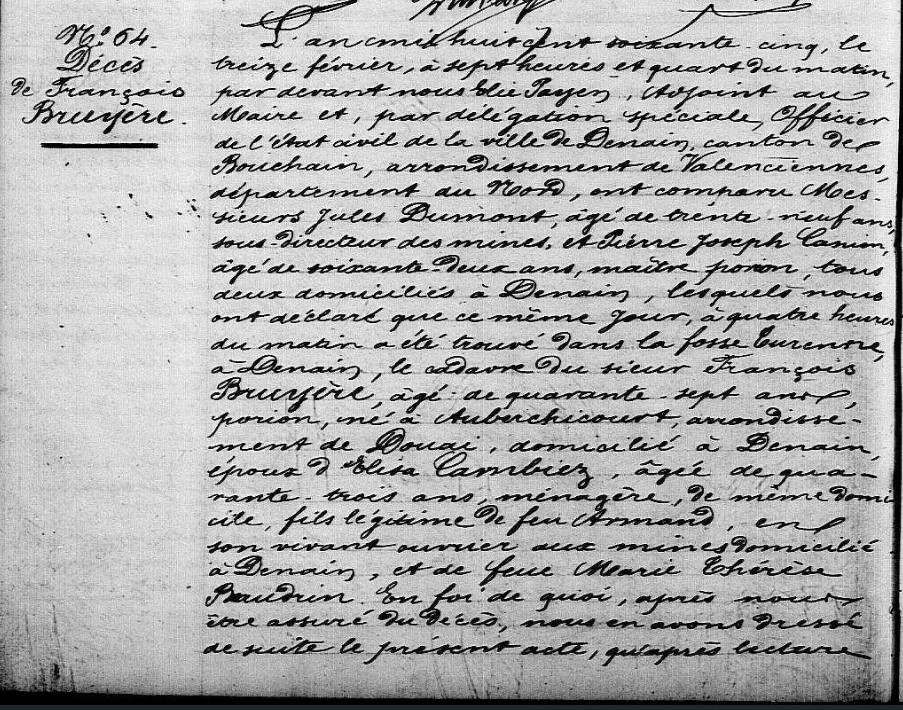 N.° 64.
Décès
de François
Bruyère.
L'an mil huit cent soixante-cinq, le
treize février, à sept heures et quart du matin,
par devant nous Elie Payen, Adjoint au
Maire et, par délégation spéciale, Officier
de l'état civil de la ville de Denain, canton de
Bouchain, arrondissement de Valenciennes,
département du Nord, ont comparu Mes-
sieurs Jules Dumont, âgé de trente-neuf ans,
sous-directeur des mines, et Pierre Joseph
âgé de soixante-deux ans, maître porion, tous
deux domiciliés à Denain, lesquels nous
ont déclaré que ce même jour, à quatre heures
du matin a été trouvé dans la fosse Turenne,
à Denain, le cadavre du sieur François
Bruyère, âgé de quarante-sept ans,
porion, né à Auberchicourt, arrondisse-
ment de Douai, domicilié à Denain,
époux d'Elisa Cambiez, âgée de qua-
rante-trois ans, ménagère, de même domi
cile, fils légitime de feu Armand, en
son vivant ouvrier aux mines domicilié
à Denain, et de feue Marie Thérèse
Baudrin. En foi de quoi, après nous
être assuré du décès, nous en avons dressé
de suite le présent acte, qu'après lecture